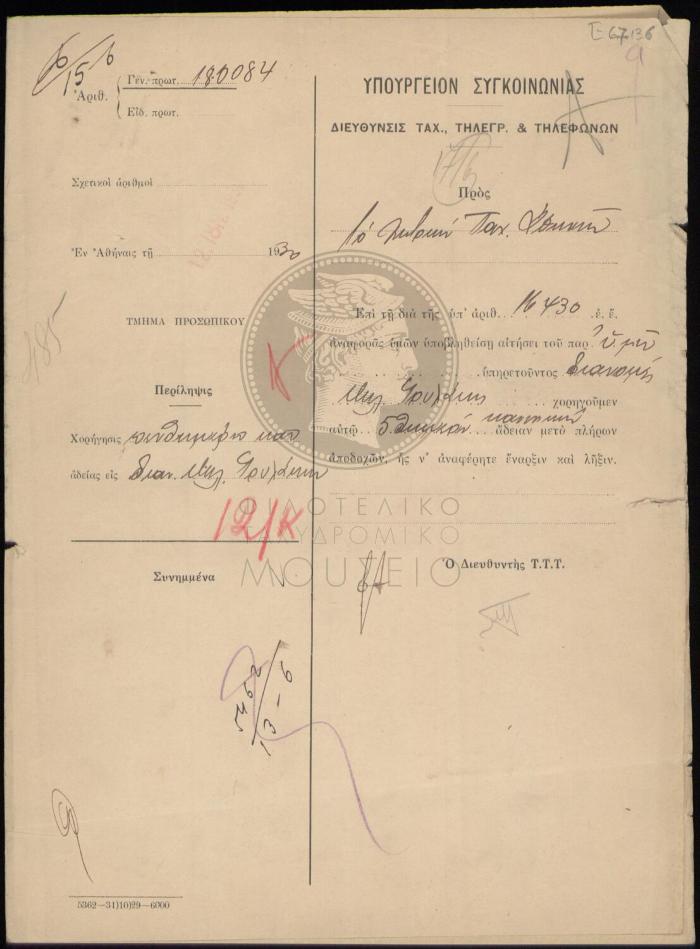 Ε 67.136
15-6
Ἀριθ.
Γεν. πρωτ. 180084
Εἰδ. πρωτ.
Σχετικοὶ ἀριθμοὶ
Ἐν Ἀθήναις τῇ 1930
ΤΜΗΜΑ ΠΡΟΣΩΠΙΚΟΥ
Περίληψις
Χορήγησις πενθημέρου καν.
ἀδείας εἰς διαν. Μιχ.
12/κ
Συνημμένα
5462
13-6
5362-31)10)29-6000
ΥΠΟΥΡΓΕΙΟΝ ΣΥΓΚΟΙΝΩΝΙΑΣ
ΔΙΕΥΘΥΝΣΙΣ ΤΑΧ., ΤΗΛΕΓΡ. & ΤΗΛΕΦΩΝΩΝ
Πρὸς
Ταχ.
Ἐπὶ τῇ διὰ τῆς ὑπ' ἀριθ. 16430 ἐ. ἔ.
ἀναφορᾶς ὑμῶν ὑποβληθείσῃ αἰτήσει τοῦ παρ' ὑμῖν
ὑπηρετοῦντος διανομέως
Μιχ. χορηγοῦμεν
αὐτῷ 5 κανονικὴν ἄδειαν μετὰ πλήρων
ἀποδοχῶν, ἧς ν' ἀναφέρητε ἔναρξιν καὶ λῆξιν.
Ὁ Διευθυντὴς Τ.Τ.Τ.
ΦΙΛΟΤΕΛΙΚΟ
ΤΑΧΥΔΡΟΜΙΚΟ
ΜΟΥΣΕΙΟ